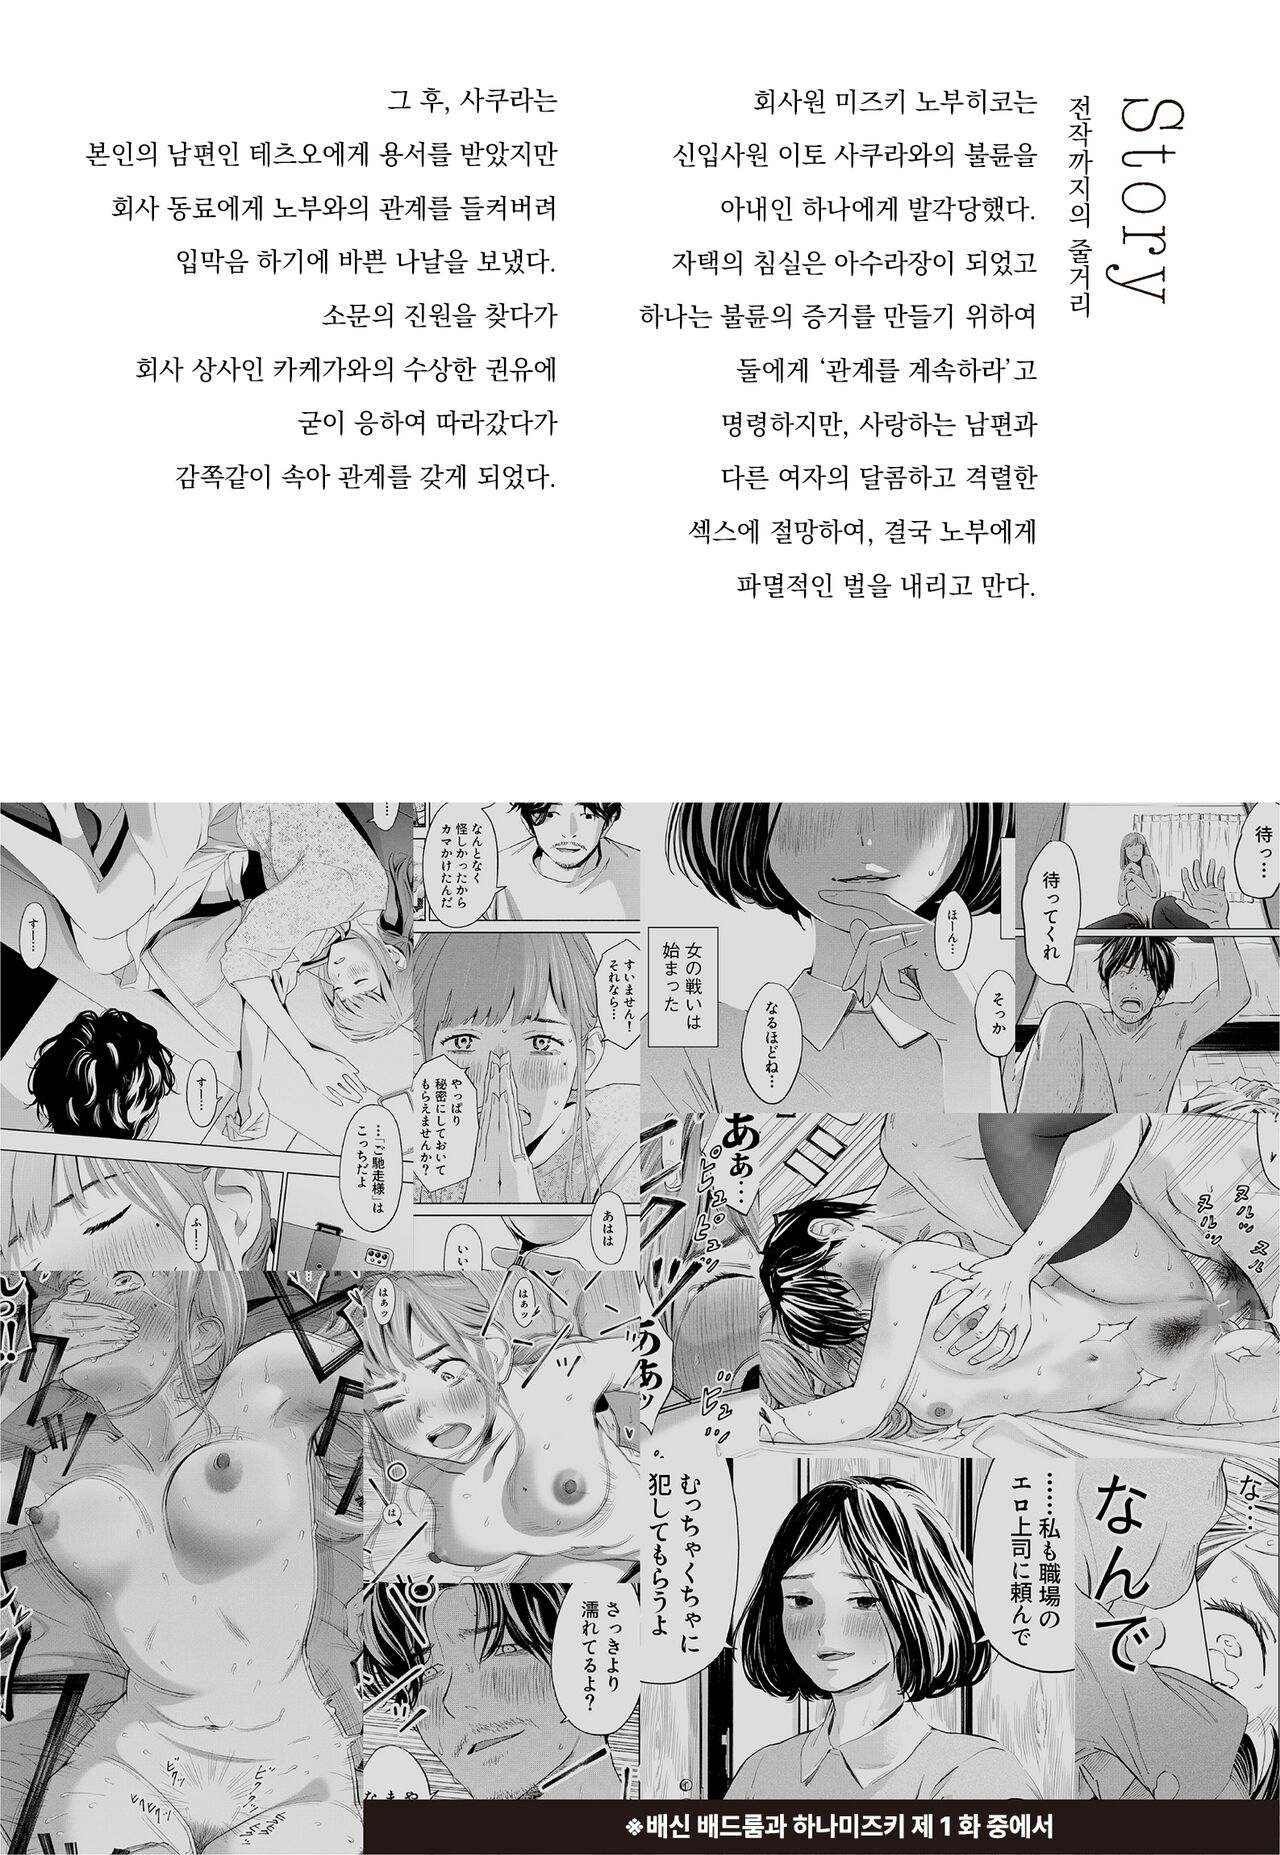 Story
전작까지의 줄거리
회사원 미즈키 노부히코는
신입사원 이토 사쿠라와의 불륜을
아내인 하나에게 발각당했다.
자택의 침실은 아수라장이 되었고
하나는 불륜의 증거를 만들기 위하여
둘에게 ‘관계를 계속하라’고
명령하지만, 사랑하는 남편과
다른 여자의 달콤하고 격렬한
섹스에 절망하여, 결국 노부에게
파멸적인 벌을 내리고 만다.
그 후, 사쿠라는
본인의 남편인 테츠오에게 용서를 받았지만
회사 동료에게 노부와의 관계를 들켜버려
입막음 하기에 바쁜 나날을 보냈다.
소문의 진원을 찾다가
회사 상사인 카케가와의 수상한 권유에
굳이 응하여 따라갔다가
감쪽같이 속아 관계를 갖게 되었다.
待っ…
待ってくれ
そっか
ほーん…
なるほどね…
女の戦いは
始まった
なんとなく
怪しかったから
カマかけたんだ
すいません！
それなら…
やっぱり
秘密にしておいて
もらえませんか？
あはは
いい
…
すー…
すー…
…「ご馳走様」は
こっちだよ
ふー…
あぁ…
ピュピュピュッ
ああァッ
ビュッ
ヌルッ
ヌルッ
ヌルッ
ヌルッ
はぁッ
はぁッ
は
っ!!
ビクッ
ビクッ
ビクッ
さっきより
濡れてるよ？
な…
なんで
……私も職場の
エロ上司に頼んで
むっちゃくちゃに
犯してもらうよ
※배신 배드룸과 하나미즈키 제 1 화 중에서